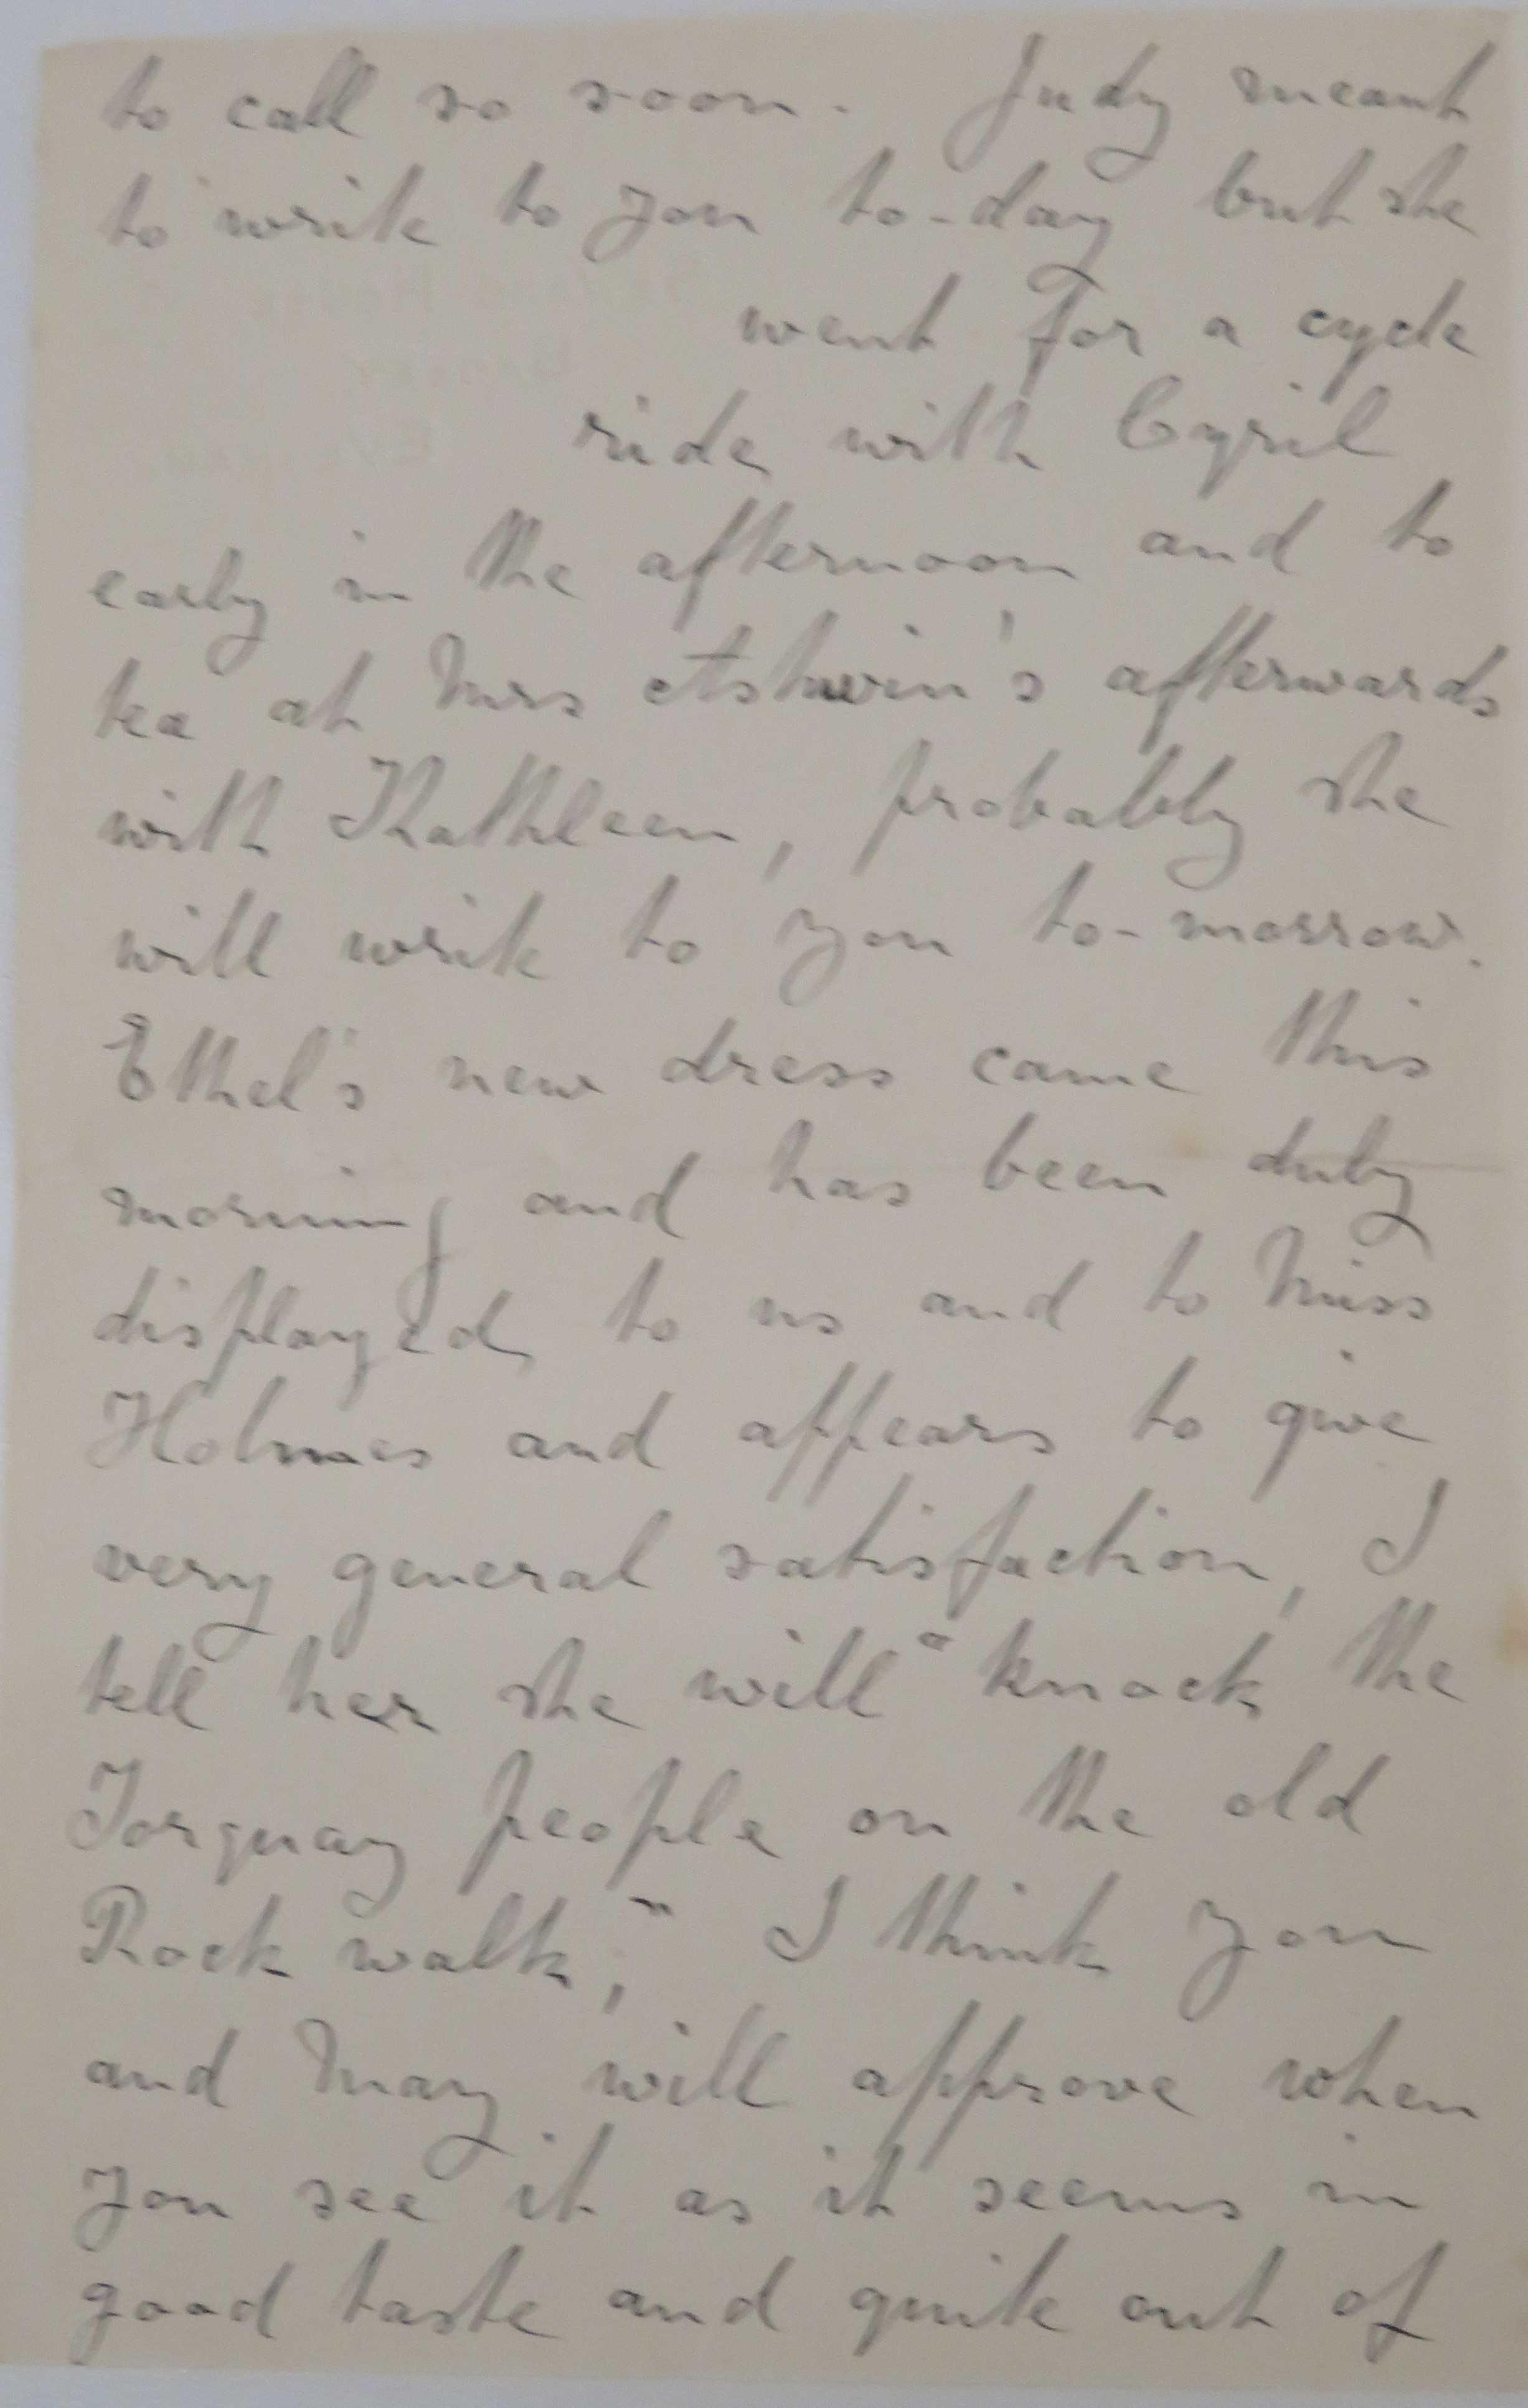 to call so soon. Judy meant
to write to you to-day but she
went for a cycle
ride with Cyril
early in the afternoon and to
tea at Mrs Ashwin's afterwards
with Kathleen, probably she
will write to you to-morrow.
Ethel's new dress came this
morning and has been duly
displayed to us and to Miss
Holmes and appears to give
very general satisfaction, I
tell her she will "knock the
Torquay people on the old
Rock walk;" I think you
and May will approve when
you see it as it seems in
good taste and quite out of